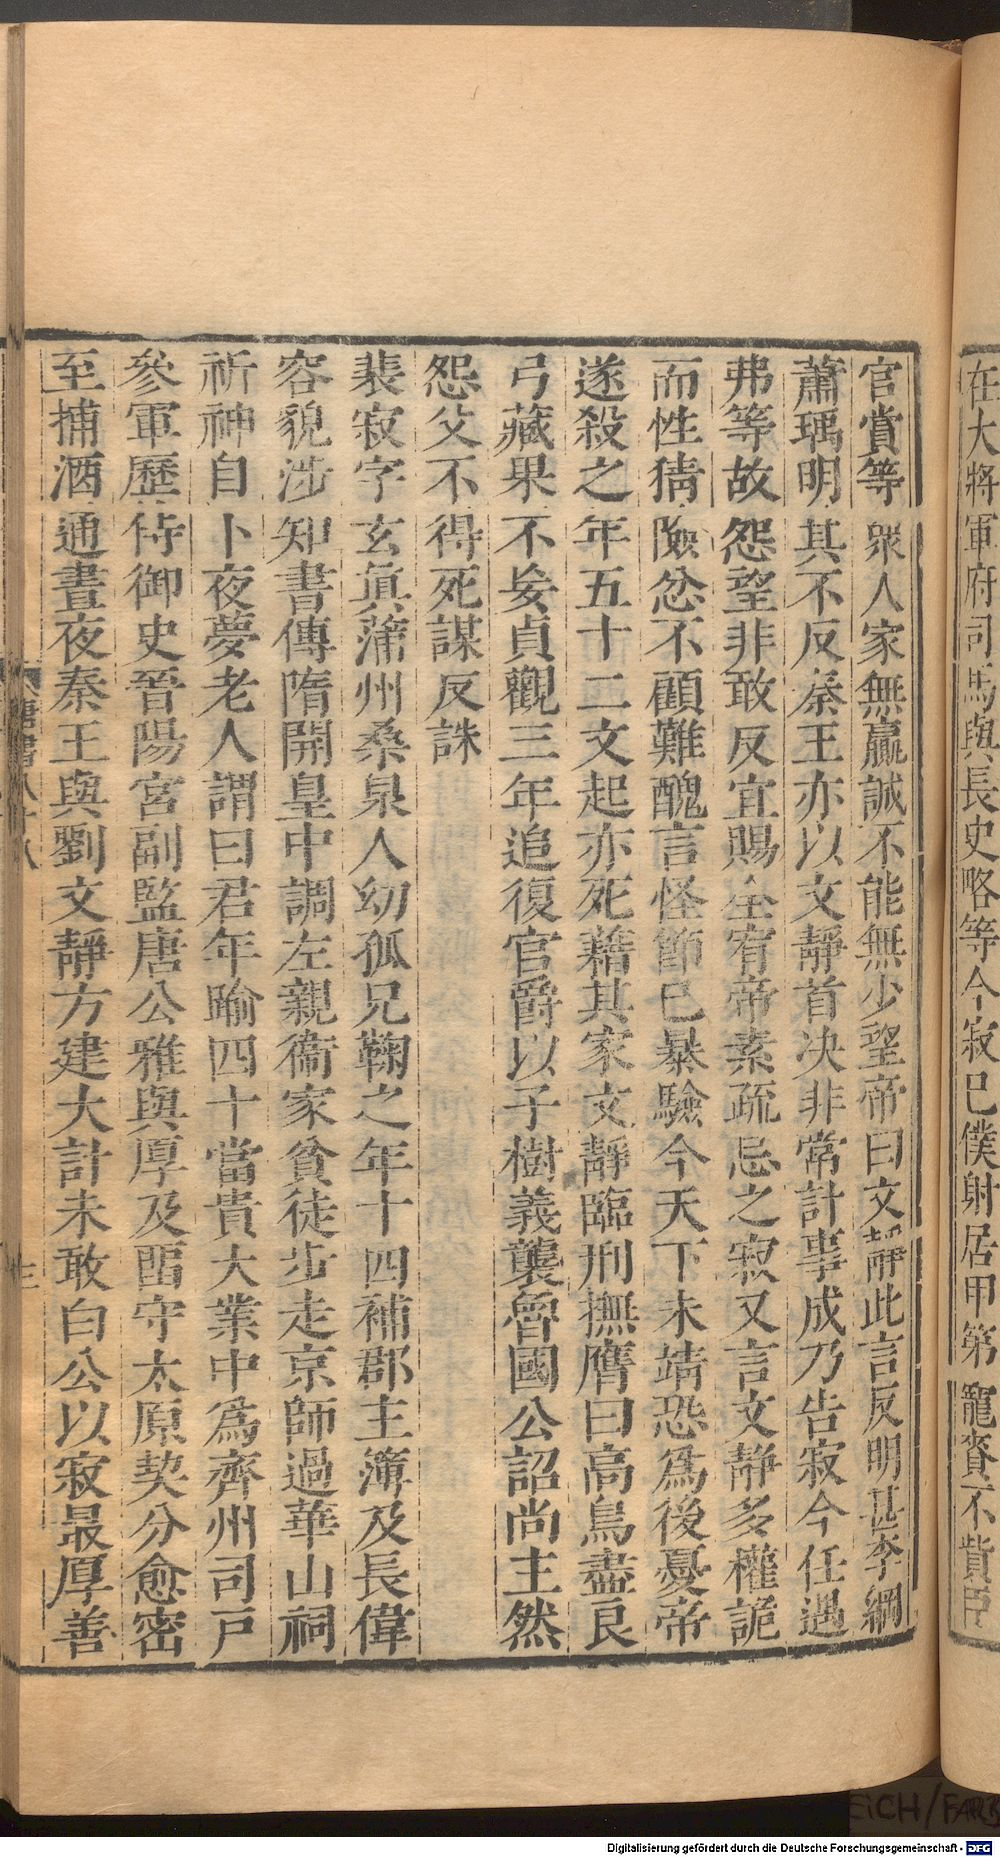 在大將軍府司馬與長史略等今寂已僕射居甲第寵賚不貲臣
官賞等衆人家無贏誠不能無少望帝曰文靜此言反明甚李綱
蕭瑀明其不反秦王亦以文靜首决非常計事成乃告寂今任遇
弗等故怨望非敢反宜賜全宥帝素疏忌之寂又言文靜多權詭
而性猜險忿不顧難醜言怪節已暴驗今天下未靖恐爲後憂帝
遂殺之年五十二文起亦死籍其家文靜臨刑撫膺曰高鳥盡良
弓藏果不妄貞觀三年追復官爵以子樹義襲魯國公詔尚主然
怨父不得死謀反誅
裴寂字玄眞蒲州桑泉人幼孤兄鞠之年十四補郡主簿及長偉
容貌涉知書傳隋開皇中調左親衞家貧徒步走京師過華山祠
祈神自卜夜夢老人謂曰君年踰四十當貴大業中爲齊州司戶
參軍歷侍御史晉陽宮副監唐公雅與厚及畱守太原契分愈密
至捕酒通晝夜秦王與劉文靜方建大計未敢白公以寂最厚善
唐書八十八
Digitalisierung gefördert durch die Deutsche Forschungsgemeinschaft - DFG